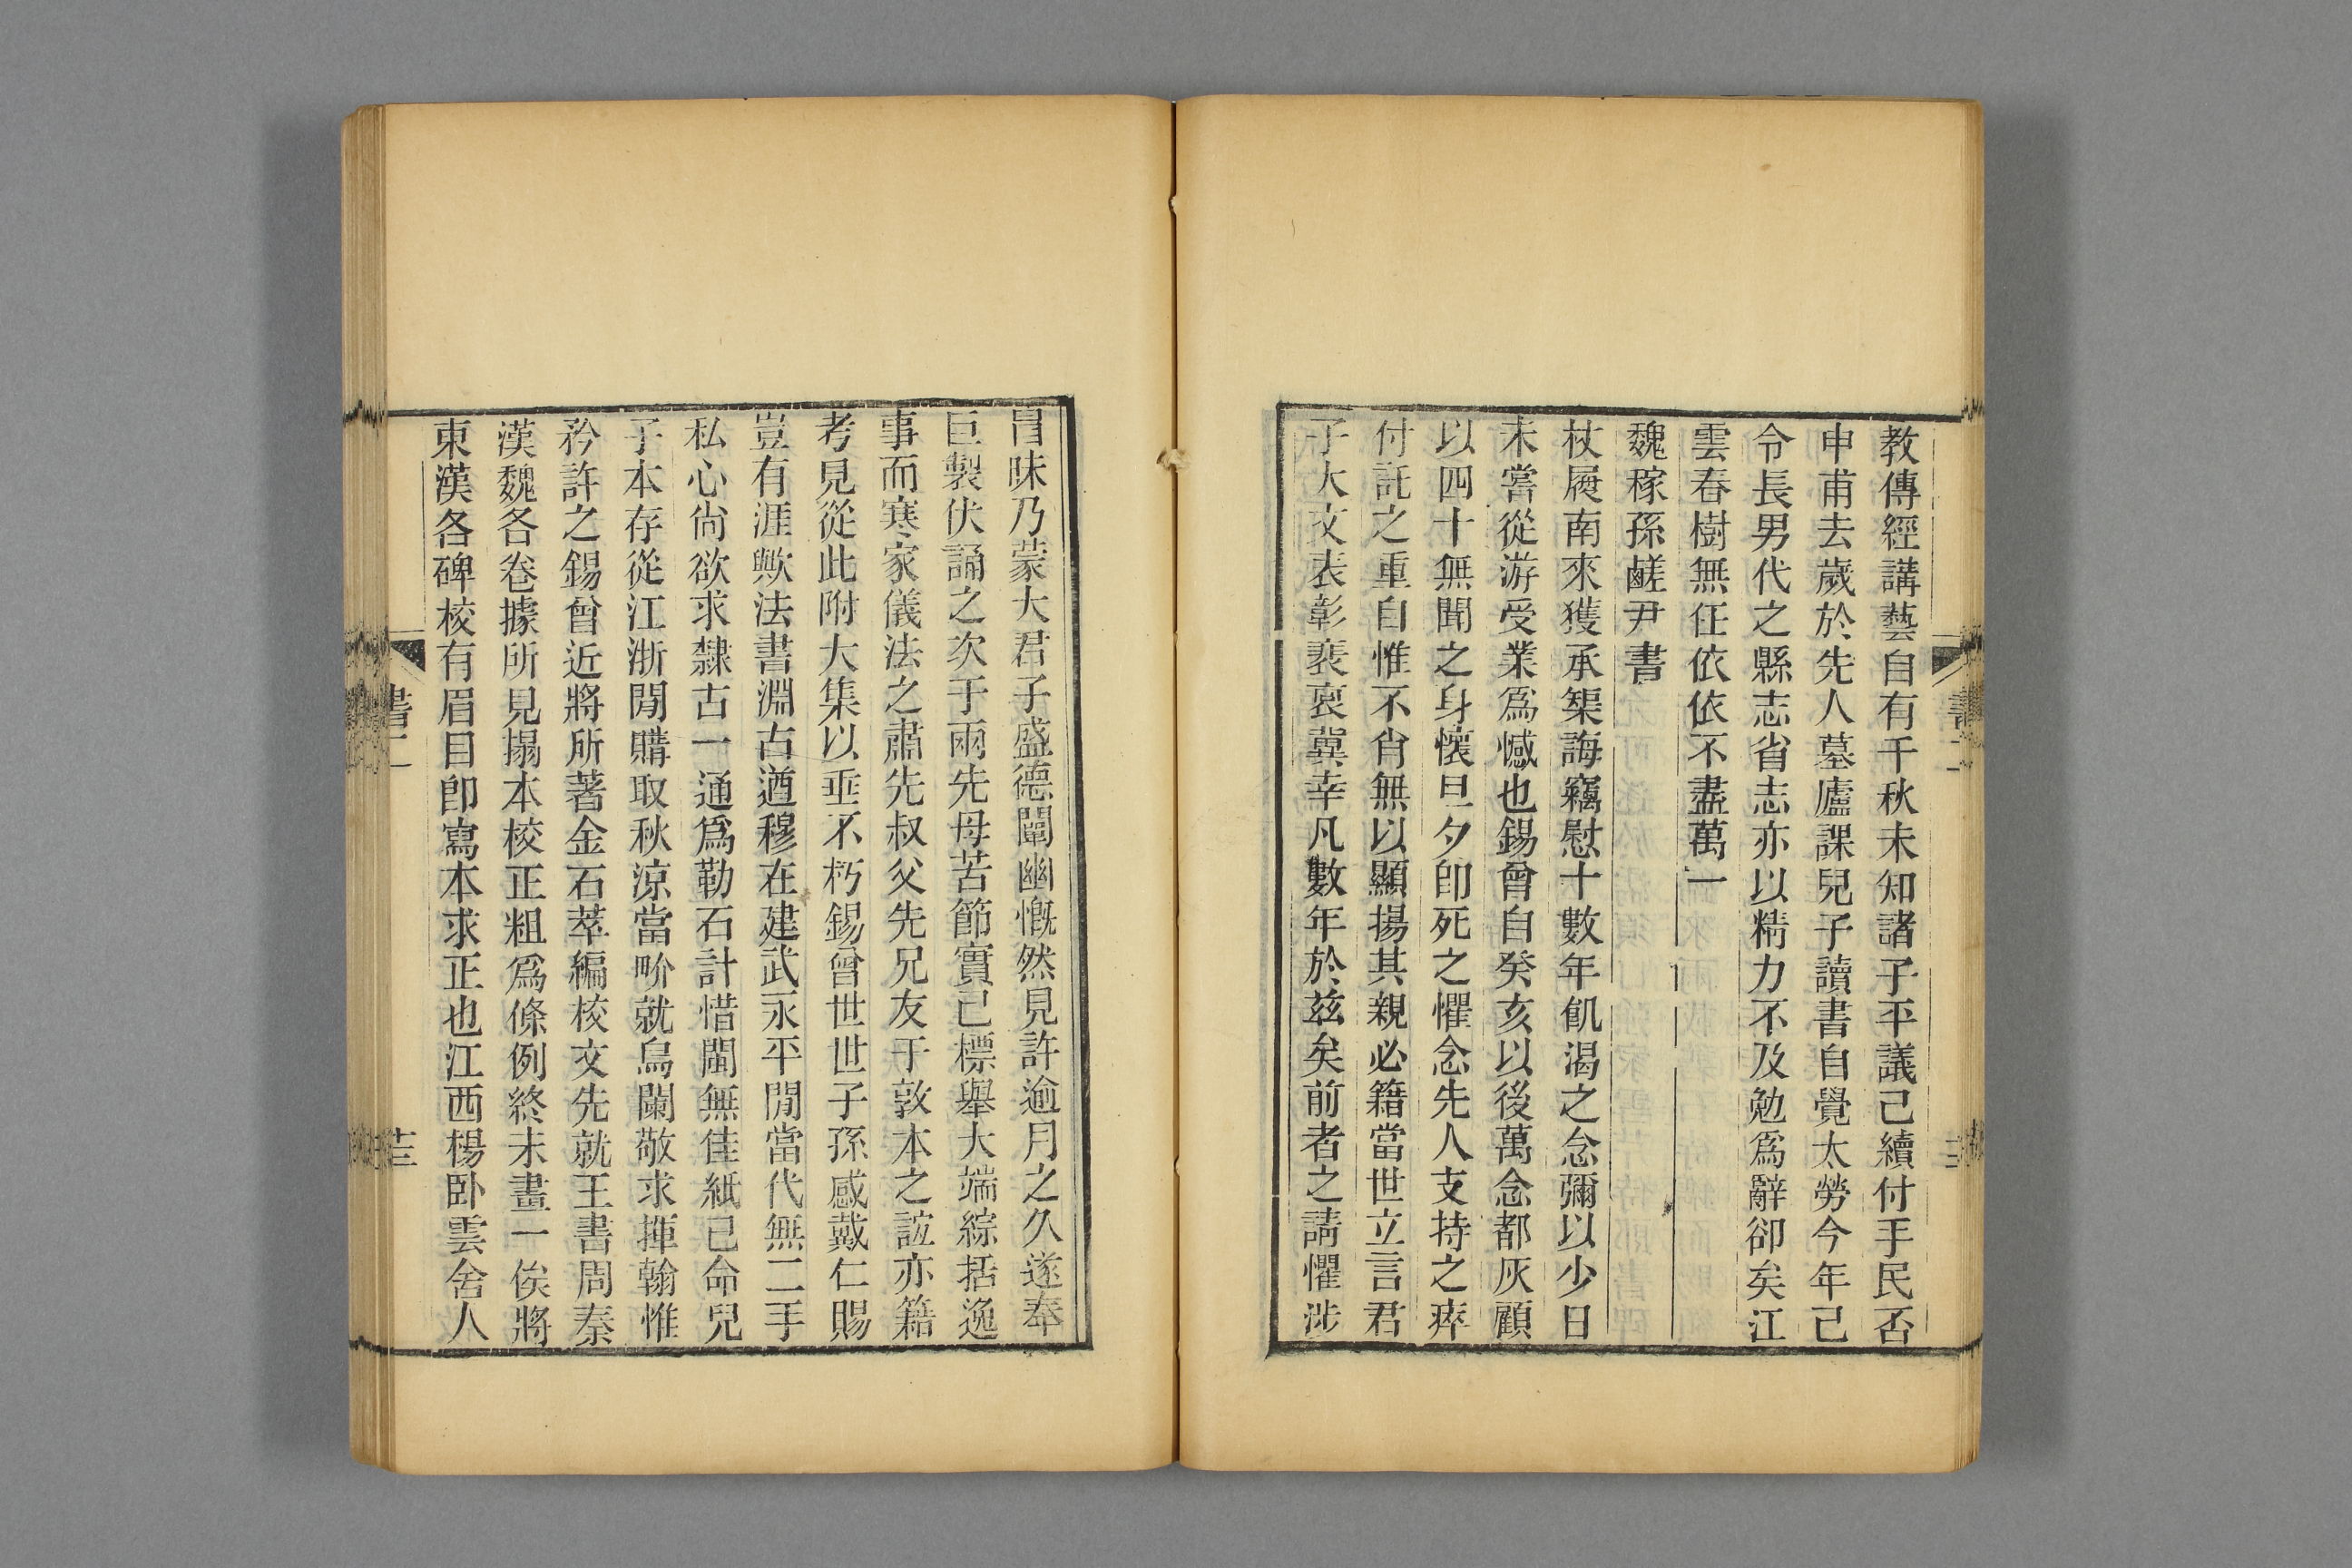 教傳經講藝自有千秋未知諸子平議已續付手民否
申甫去歲於先人墓廬課兒子讀書自覺太勞今年已
令長男代之縣志省志亦以精力不及勉爲辭卻矣江
雲春樹無任依依不盡萬一
魏稼孫鹺尹書
杖屨南來獲承榘誨竊慰十數年飢渴之念彌以少日
未嘗從游受業爲憾也錫曾自癸亥以後萬念都灰顧
以四十無聞之身懷旦夕卽死之懼念先人支持之瘁
付託之重自惟不肖無以顯揚其親必籍當世立言君
子大文表彰裴裒冀幸凡數年於茲矣前者之請懼涉
冒昧乃蒙大君子盛德闡幽慨然見許逾月之久遂奉
巨製伏誦之次于兩先母苦節實已標舉大端綜括逸
事而寒家儀法之肅先叔父先兄友于敦本之誼亦籍
考見從此附大集以垂不朽錫曾世世子孫感戴仁賜
豈有涯歟法書淵古遒穆在建武永平閒當代無二手
私心尙欲求隸古一通爲勒石計惜閩無佳紙已命兒
子本存從江浙閒購取秋涼當畍就烏闌敬求揮翰惟
矜許之錫曾近將所著金石萃編校文先就王書周秦
漢魏各卷據所見搨本校正粗爲條例終未畫一俟將
東漢各碑校有眉目卽寫本求正也江西楊卧雲舍人
書二